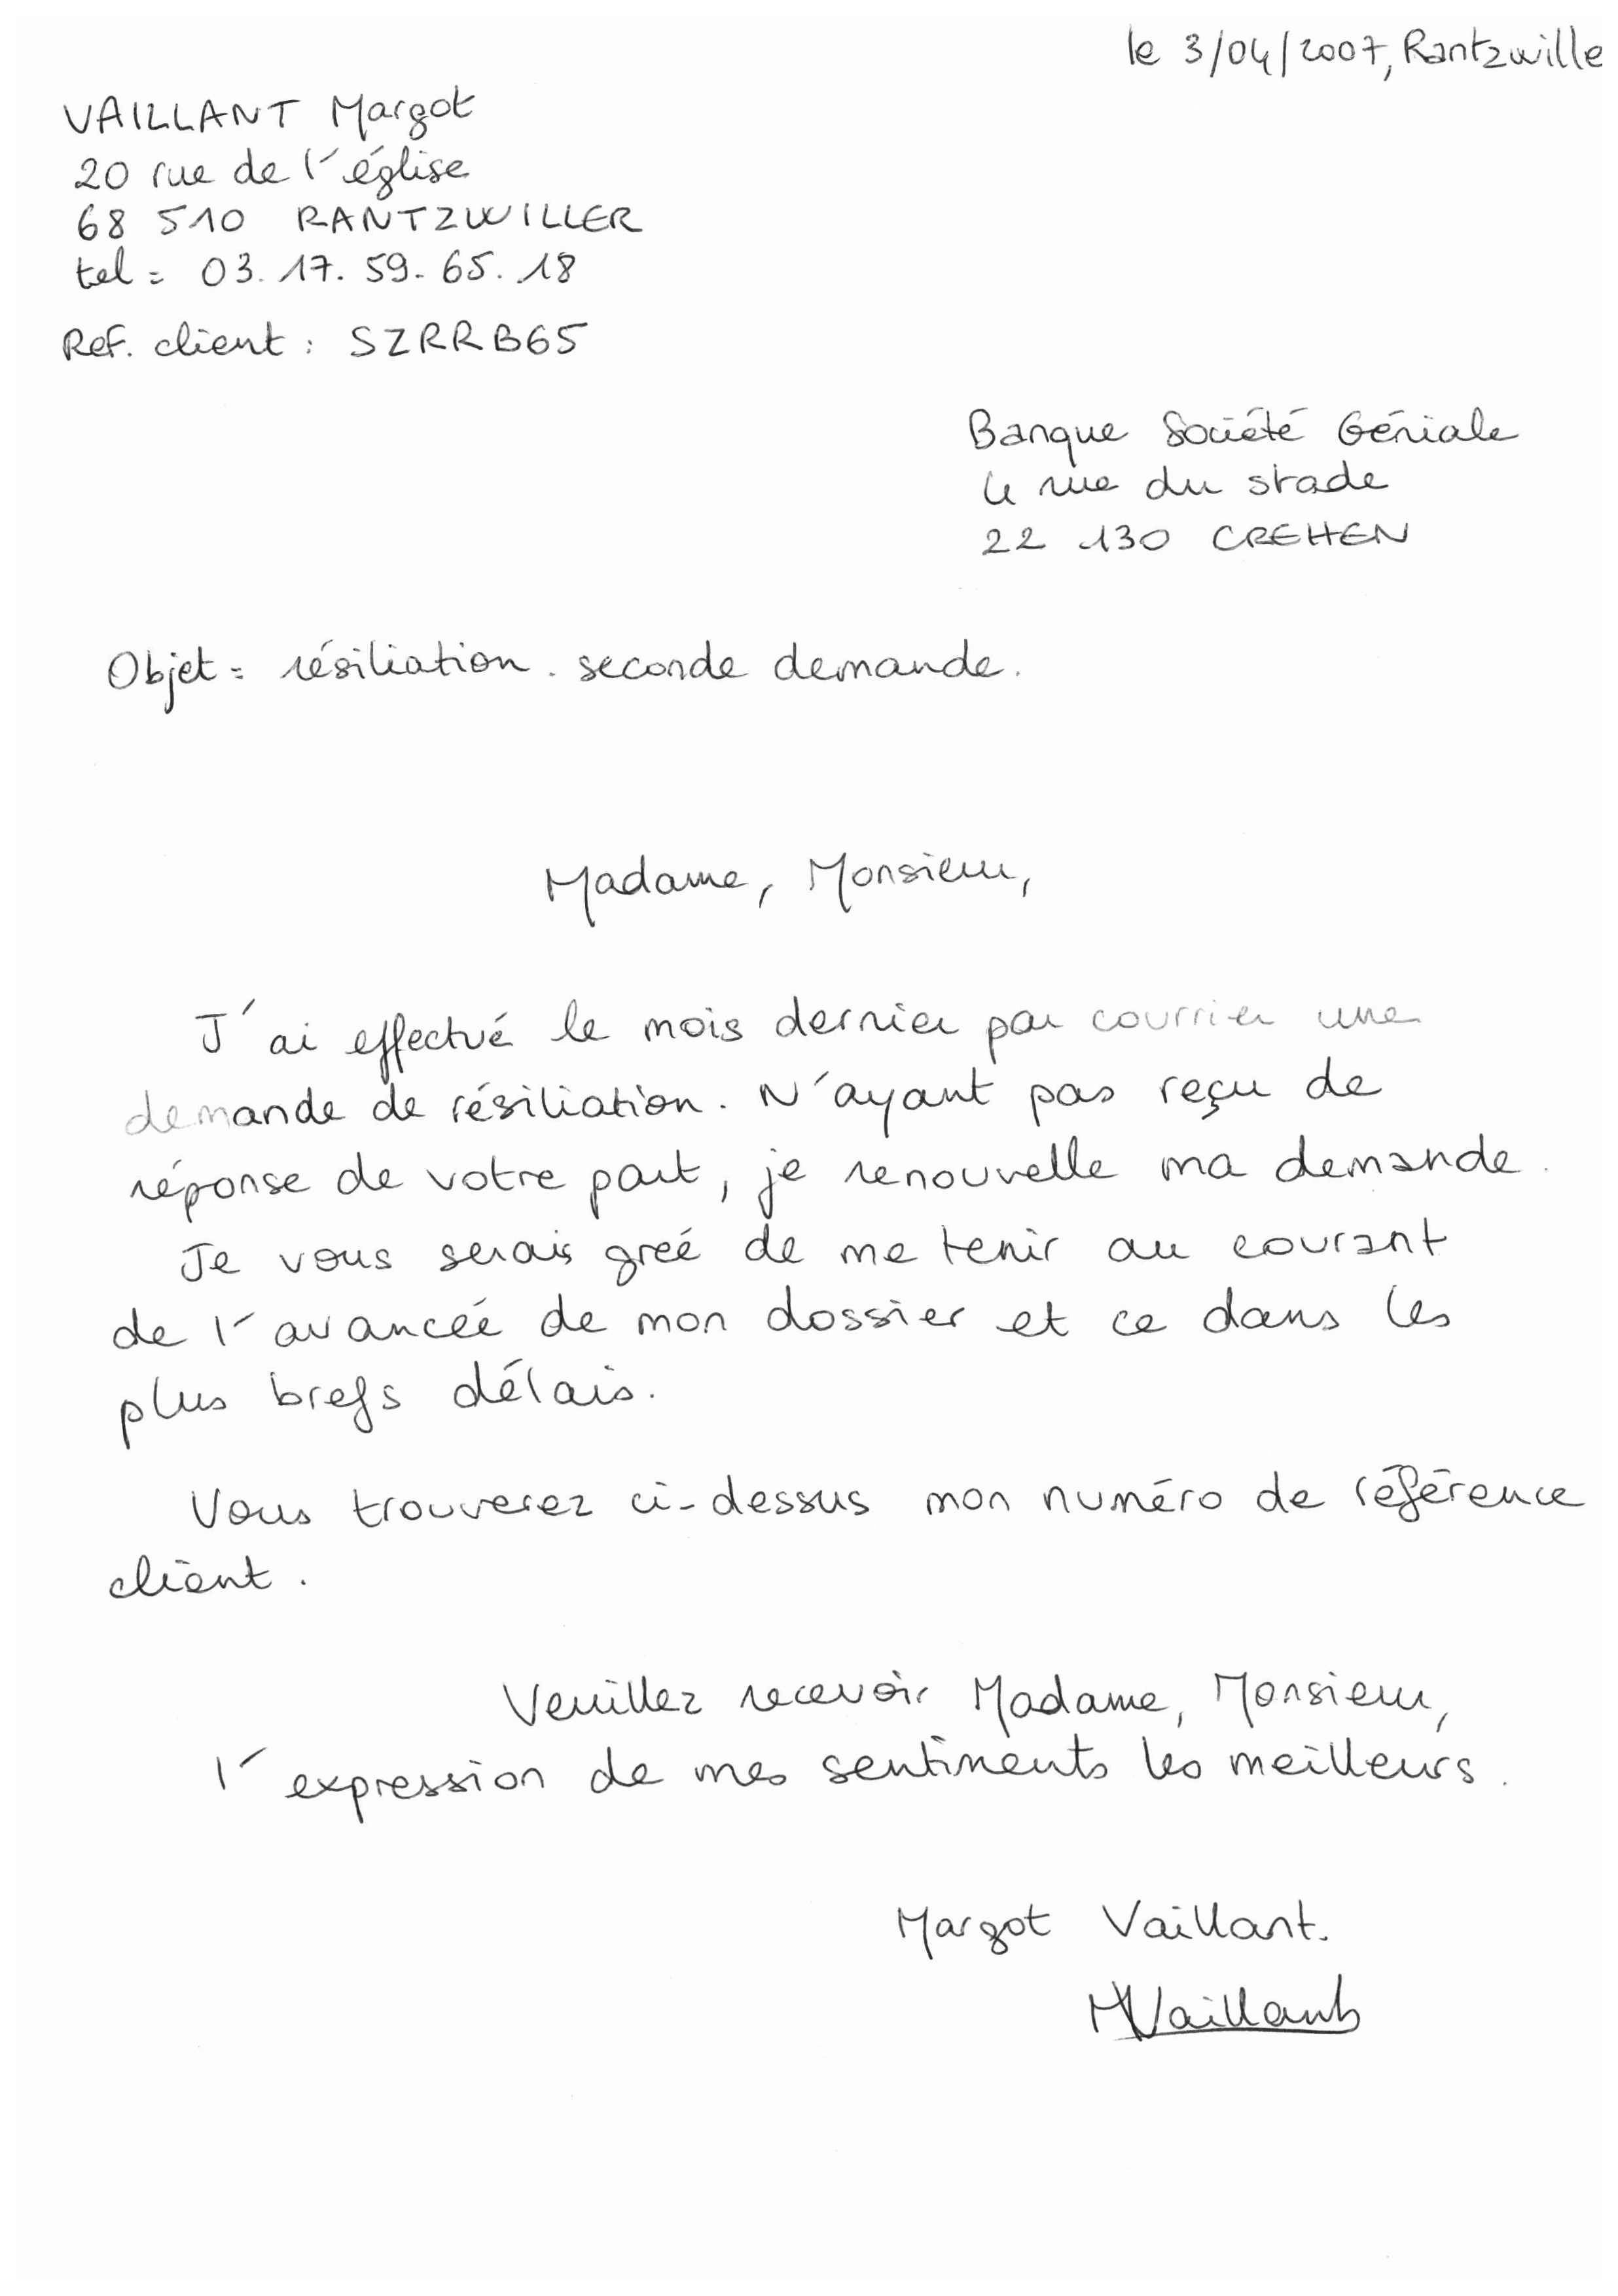 le 3/04/2007, Rantzwille
VAILLANT Margot
20 rue de l'église
68 510 RANTZWILLER
tel = 03.17.59.65.18
Ref. client : SZRRB65
Banque Société Géniale
4 rue du stade
22 130 CREHEN
Objet = résiliation. seconde demande.
Madame, Monsieur,
J'ai effectué le mois dernier par courrier une
demande de résiliation. N'ayant pas reçu de
réponse de votre part, je renouvelle ma demande.
Je vous serais greé de me tenir au courant
de l'avancée de mon dossier et ce dans les
plus brefs délais.
Vous trouverez ci-dessus mon numéro de référence
client.
Veuillez recevoir Madame, Monsieur,
l'expression de mes sentiments les meilleurs.
Margot Vaillant.
MVaillant